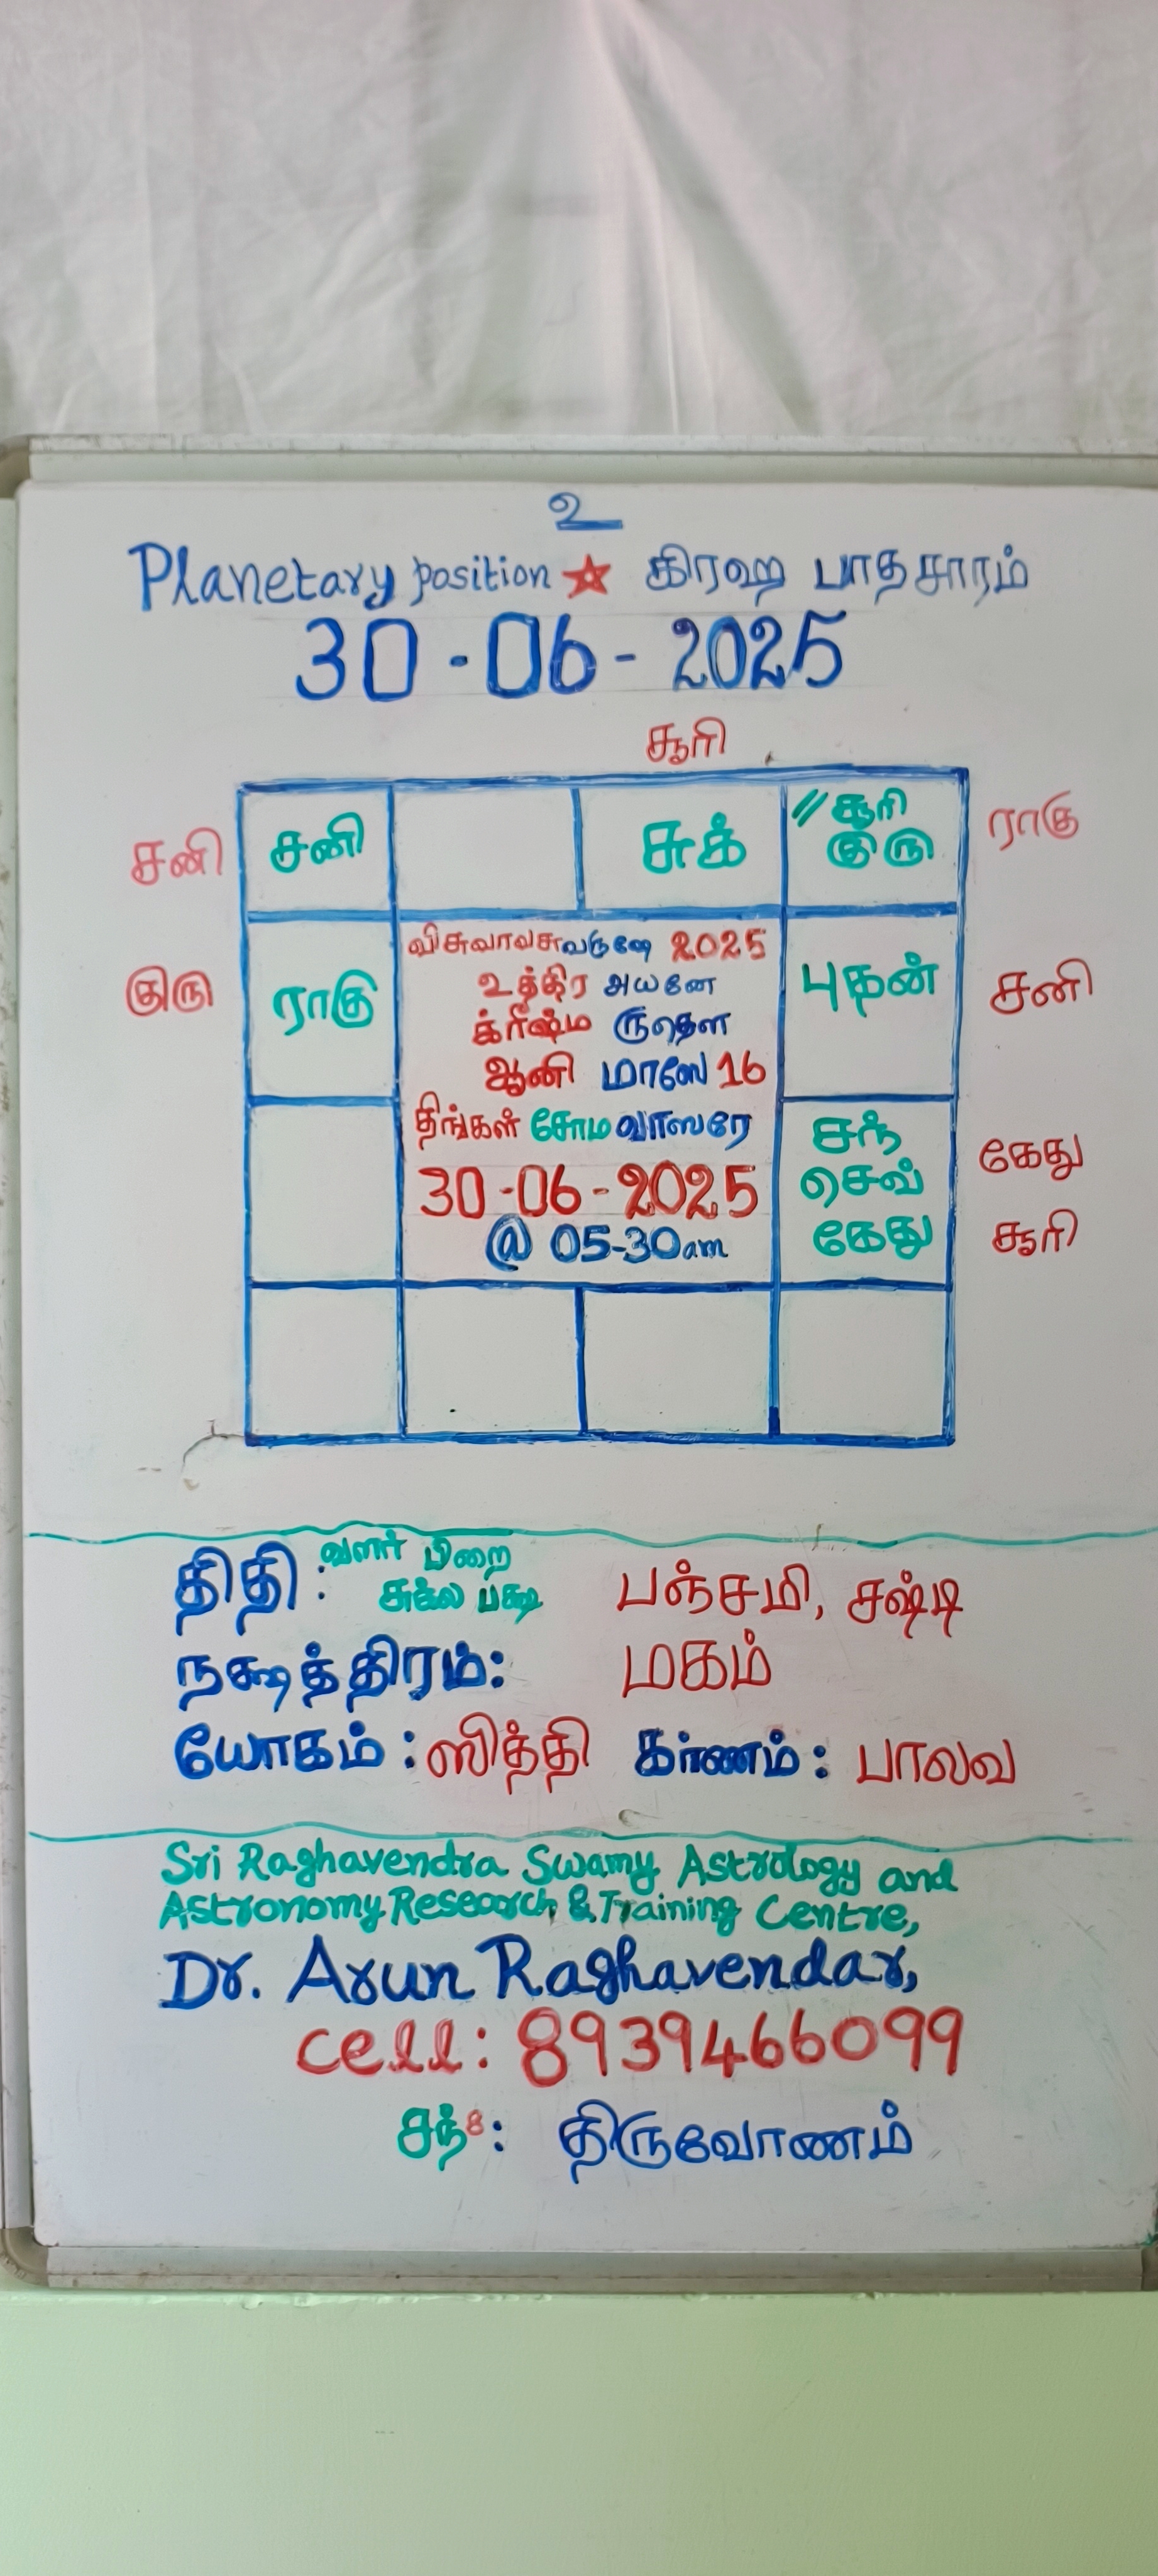 உ
Planetary position ★ கிரஹ பாதசாரம்
30-06-2025
சூரி
சனி
சனி
சுக்
// சூரி
குரு
ராகு
குரு
ராகு
விசுவாவசுவருஷே 2025
உத்திர அயனே
க்ரீஷ்ம ருதௌ
ஆனி மாஸே 16
திங்கள் சோம வாஸரே
30-06-2025
@ 05-30am
புதன்
சனி
சந்
செவ்
கேது
கேது
சூரி
திதி : வளர் பிறை
சுக்ல பக்ஷ
பஞ்சமி, சஷ்டி
நக்ஷத்திரம்: மகம்
யோகம் : ஸித்தி கர்ணம் : பாலவ
Sri Raghavendra Swamy Astrology and
Astronomy Research & Training Centre,
Dr. Arun Raghavendar,
cell: 8939466099
சந்8: திருவோணம்